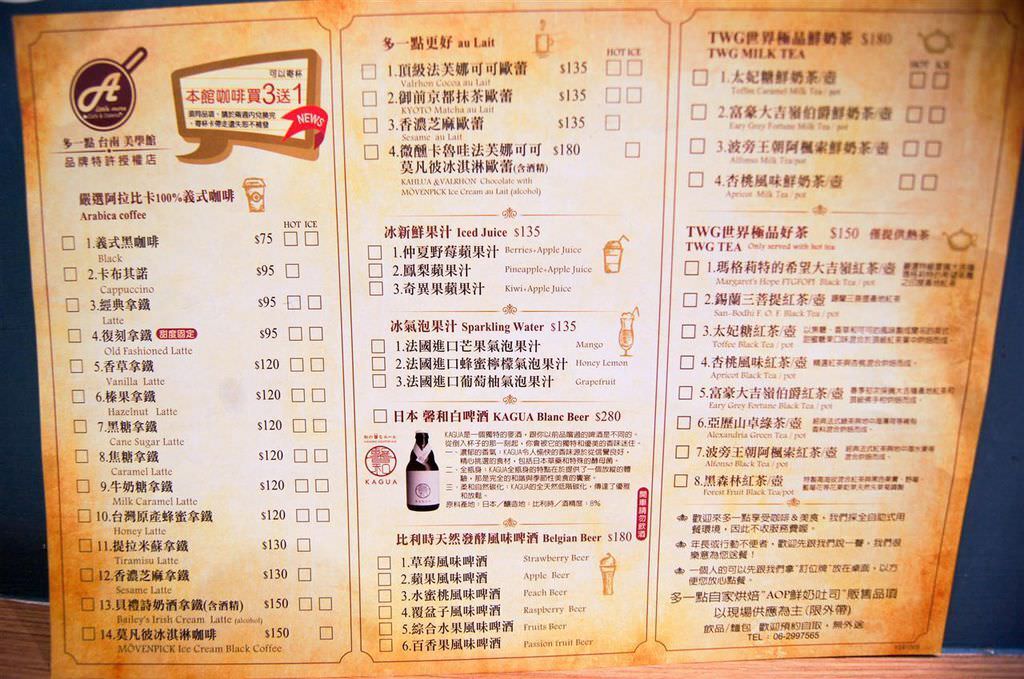 A
little more
Cafe & Dessert
多一點 台南 美學館
品牌特許授權店
可以寄杯
本館咖啡買3送1
NEWS
嚴選阿拉比卡100%義式咖啡
Arabica coffee
HOT ICE
1.義式黑咖啡 $75
Black
2.卡布其諾 $95
Cappuccino
3.經典拿鐵 $95
Latte
4.復刻拿鐵 甜度固定 $95
Old Fashioned Latte
5.香草拿鐵 $120
Vanilla Latte
6.榛果拿鐵 $120
Hazelnut Latte
7.黑糖拿鐵 $120
Cane Sugar Latte
8.焦糖拿鐵 $120
Caramel Latte
9.牛奶糖拿鐵 $120
Milk Caramel Latte
10.台灣原產蜂蜜拿鐵 $120
Honey Latte
11.提拉米蘇拿鐵 $130
Tiramisu Latte
12.香濃芝麻拿鐵 $130
Sesame Latte
13.貝禮詩奶酒拿鐵(含酒精) $150
Bailey's Irish Cream Latte (alcohol)
14.莫凡彼冰淇淋咖啡 $150
MÖVENPICK Ice Cream Black Coffee
多一點更好 au Lait
HOT ICE
1.頂級法芙娜可可歐蕾 $135
Valrhon Cocoa au Lait
2.御前京都抹茶歐蕾 $135
KYOTO Matcha au Lait
3.香濃芝麻歐蕾 $135
Sesame au Lait
4.微醺卡魯哇法芙娜可可 $180
莫凡彼冰淇淋歐蕾(含酒精)
KAHLUA &VALRHON Chocolate with
MÖVENPICK Ice Cream au Lait (alcohol)
冰新鮮果汁 Iced Juice $135
1.仲夏野莓蘋果汁 Berries+Apple Juice
2.鳳梨蘋果汁 Pineapple+Apple Juice
3.奇異果蘋果汁 Kiwi+Apple Juice
冰氣泡果汁 Sparkling Water $135
1.法國進口芒果氣泡果汁 Mango
2.法國進口蜂蜜檸檬氣泡果汁 Honey Lemon
3.法國進口葡萄柚氣泡果汁 Grapefruit
日本 馨和白啤酒 KAGUA Blanc Beer $280
KAGUA
KAGUA是一個獨特的麥酒，跟你以前品嚐過的啤酒是不同的，
從倒入杯子的那一刻起，你會被它的獨特和優美的香味迷住。
原料產地：日本／釀造地：比利時／酒精度：8%
開車請勿飲酒
比利時天然發酵風味啤酒 Belgian Beer $180
1.草莓風味啤酒 Strawberry Beer
2.蘋果風味啤酒 Apple Beer
3.水蜜桃風味啤酒 Peach Beer
4.覆盆子風味啤酒 Raspberry Beer
5.綜合水果風味啤酒 Fruits Beer
6.百香果風味啤酒 Passion fruit Beer
TWG世界極品鮮奶茶 $180
TWG MILK TEA
HOT ICE
1.太妃糖鮮奶茶/壺
Toffee Caramel Milk Tea / pot
2.富豪大吉嶺伯爵鮮奶茶/壺
Eary Grey Fortune Milk Tea / pot
3.波旁王朝阿楓索鮮奶茶/壺
Alfonso Milk Tea/pot
4.杏桃風味鮮奶茶/壺
Apricot Milk Tea / pot
TWG世界極品好茶 $150 僅提供熱茶
TWG TEA Only served with hot tea
1.瑪格莉特的希望大吉嶺紅茶/壺
Margaret's Hope FTGFOP1 Black Tea / pot
2.錫蘭三菩提紅茶/壺
San-Bodhi F. O. F. Black Tea / pot
3.太妃糖紅茶/壺
Toffee Black Tea / pot
4.杏桃風味紅茶/壺
Apricot Black Tea / pot
5.富豪大吉嶺伯爵紅茶/壺
Eary Grey Fortune Black Tea / pot
6.亞歷山卓綠茶/壺
Alexandria Green Tea / pot
7.波旁王朝阿楓索紅茶/壺
Alfonso Black Tea / pot
8.黑森林紅茶/壺
Forest Fruit Black Tea/pot
歡迎來多一點享受咖啡&美食，我們採全自助式用
餐環境，因此不收服務費喔。
年長或行動不便者，歡迎先跟我們說一聲，我們很
樂意為您送餐！
一個人的可以先跟我們拿"訂位牌"放在桌面，以方
便您放心點餐。
多一點自家烘焙"AOP鮮奶吐司"販售品項
以現場供應為主(限外帶)
飲品/麵包 歡迎預約自取，無外送
TEL：06-2997565